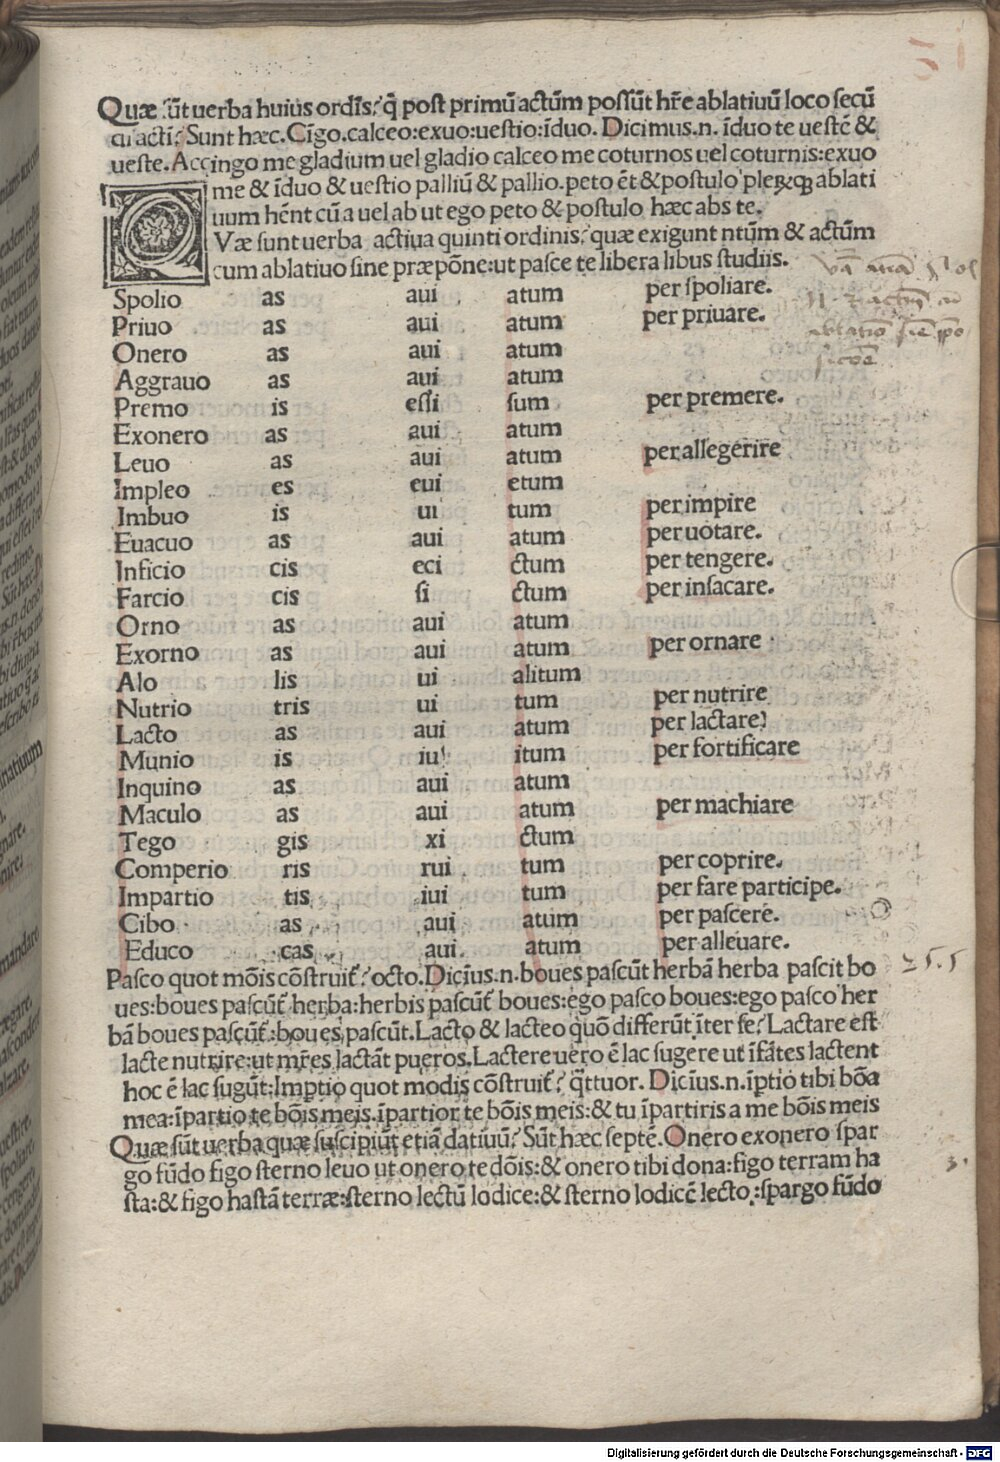 Quæ sũt uerba huius ordĩs? q̃ post primũ actũm possũt hr̃e ablatiuũ loco secũ
di acti? Sunt hæc. Cĩgo.calceo:exuo:uestio:ĩduo. Dicimus.n. ĩduo te uestẽ &
ueste. Accingo me gladium uel gladio calceo me coturnos uel coturnis:exuo
me & ĩduo & uestio palliũ & pallio.peto ẽt & postulo pleꝝqꝫ ablati
uum hẽnt cũ a uel ab ut ego peto & postulo hæc abs te.
QVæ sunt uerba actiua quinti ordinis? quæ exigunt ntũm & actũm
cum ablatiuo sine præpõne:ut pasce te libera libus studiis.
Spolio as aui atum per spoliare.
Priuo as aui atum per priuare.
Onero as aui atum
Aggrauo as aui atum
Premo is essi sum per premere.
Exonero as aui atum
Leuo as aui atum per allegerire
Impleo es eui etum
Imbuo is ui tum per impire
Euacuo as aui atum per uotare.
Inficio cis eci ctum per tengere.
Farcio cis si ctum per insacare.
Orno as aui atum
Exorno as aui atum per ornare
Alo lis ui alitum
Nutrio tris ui tum per nutrire
Lacto as aui atum per lactare)
Munio is iui itum per fortificare
Inquino as aui atum
Maculo as aui atum per machiare
Tego gis xi ctum
Comperio ris rui tum per coprire.
Impartio tis iui tum per fare participe.
Cibo as aui atum per pascere.
Educo cas aui atum per alleuare.
Pasco quot mõis cõstruit̃? octo. Dicĩus.n.boues pascũt herbã herba pascit bo
ues:boues pascũt̃ herba:herbis pascũt̃ boues:ego pasco boues:ego pasco her
bã boues pascũt̃:boues pascũt. Lacto & lacteo quõ differũt ĩter se? Lactare est
lacte nutrire:ut mr̃es lactãt pueros. Lactere uero ẽ lac sugere ut ĩfãtes lactent
hoc ẽ lac sugũt: Imptio quot modis cõstruit̃? q̃ttuor. Dicĩus.n. ĩptio tibi bõa
mea:ĩpartio te bõis meis.ĩpartior te bõis meis:& tu ĩpartiris a me bõis meis
Quæ sũt uerba quæ suscipiũt etiã datiuũ? Sũt hæc septẽ. Onero exonero spar
go fũdo figo sterno leuo ut onero te dõis:& onero tibi dona:figo terram ha
sta:& figo hastã terræ:sterno lectũ lodice:& sterno lodicẽ lecto.:spargo fũdo
Digitalisierung gefördert durch die Deutsche Forschungsgemeinschaft - DFG